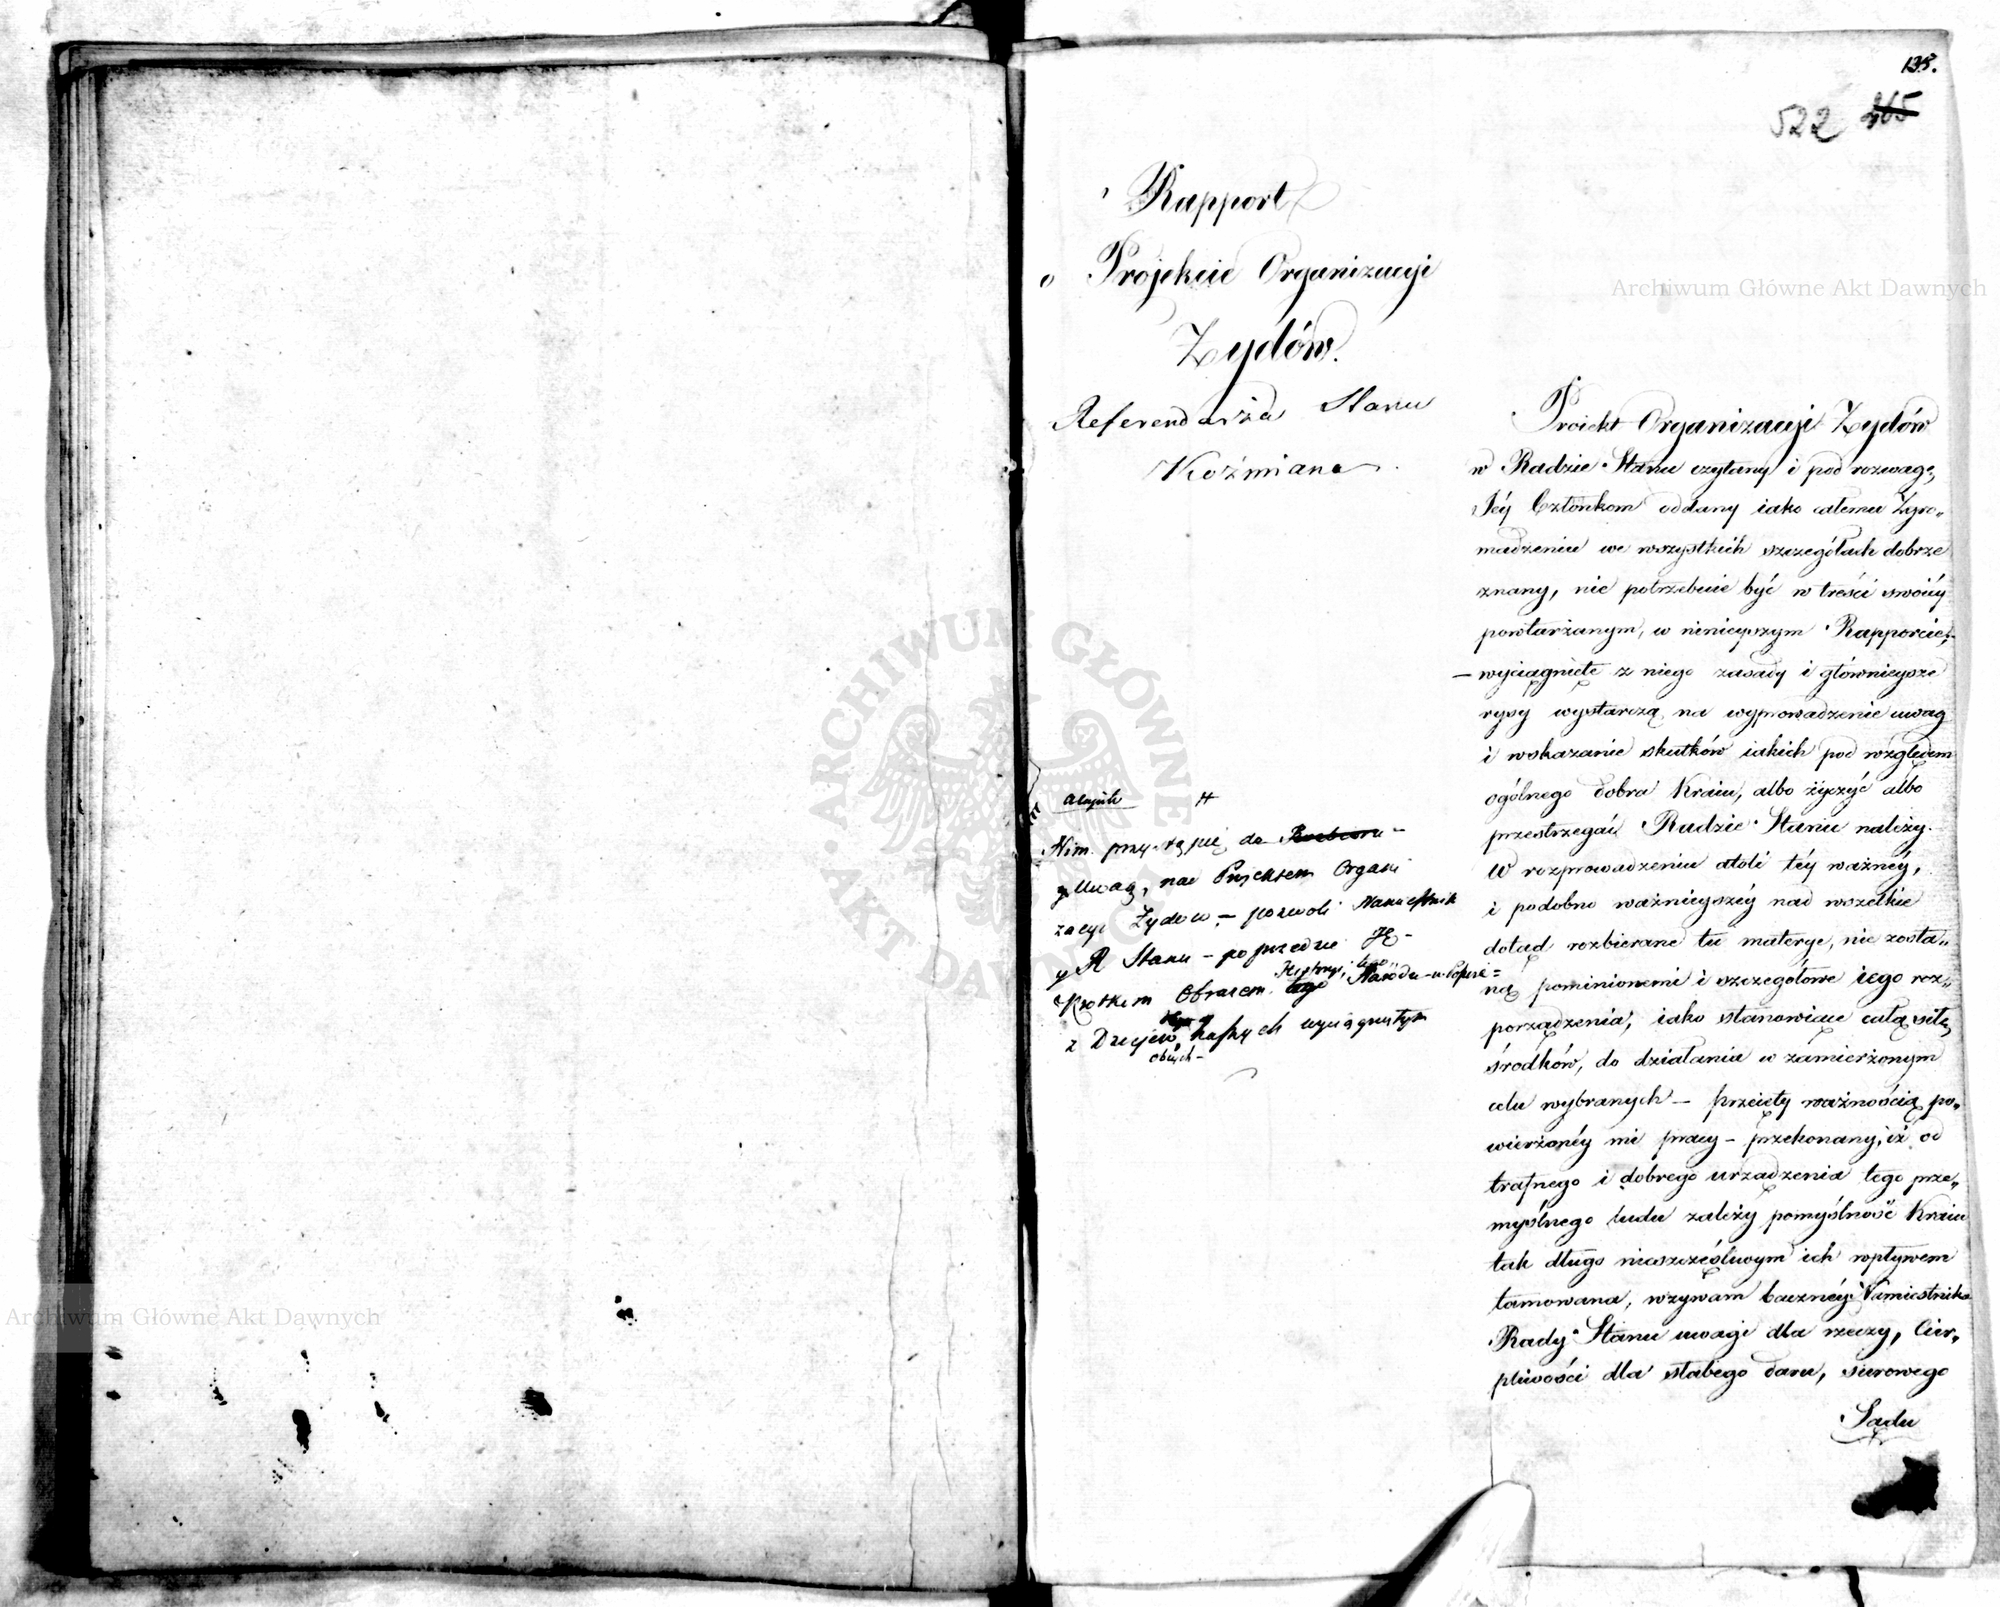 135.
522 365
Rapport
o Projekcie Organizacyi
Zydów.
Referendarza Stanu
Koźmiana.
Proiekt Organizacyi Zydów
w Radzie Stanu czytany i pod rozwagę
Jéy Członkom oddany iako całemu Zgro„
madzeniu we wszystkich szczegółach dobrze
znany, nie potrzebuie być w treści swoiéy
powtarzanym, w ninieyszym Rapporcie,
— wyciągnięte z niego zasady i głównieysze
rysy wystarczą na wyprowadzenie uwag
i wskazanie skutków iakich pod względem
ogólnego dobra Kraiu, albo życzyć albo
przestrzegać Radzie Stanu należy.
W rozprowadzeniu atoli téy ważnéy,
i podobno ważnieyszéy nad wszelkie
dotąd rozbierane tu materye, nie zosta„
ną pominionemi i szczegółowe iego roz„
porządzenia, iako stanowiące całą siłę
środków, do działania w zamierzonym
celu wybranych — przeięty ważnością po„
wierzonéy mi pracy — przekonany, iż od
trafnego i dobrego urządzenia tego prze„
myślnego ludu zależy pomyślność Kraiu
tak długo nieszczęśliwym ich wpływem
tamowana, wzywam bacznéy Namiestnika
Rady Stanu uwagi dla rzeczy, Cier„
pliwości dla słabego daru, surowego
Sądu
Nim przystąpię do
Uwag, nad Projektem Organi
zacyi Zydów — pozwoli Namiestnik
y R Stanu — poprzedzić Ję —
Krótkim Obrazem tego Narodu
z Dziejów naszych wyciągniętym
obcych —
Archiwum Główne Akt Dawnych
ARCHIWUM GŁÓWNE AKT DAWNYCH
Archiwum Główne Akt Dawnych